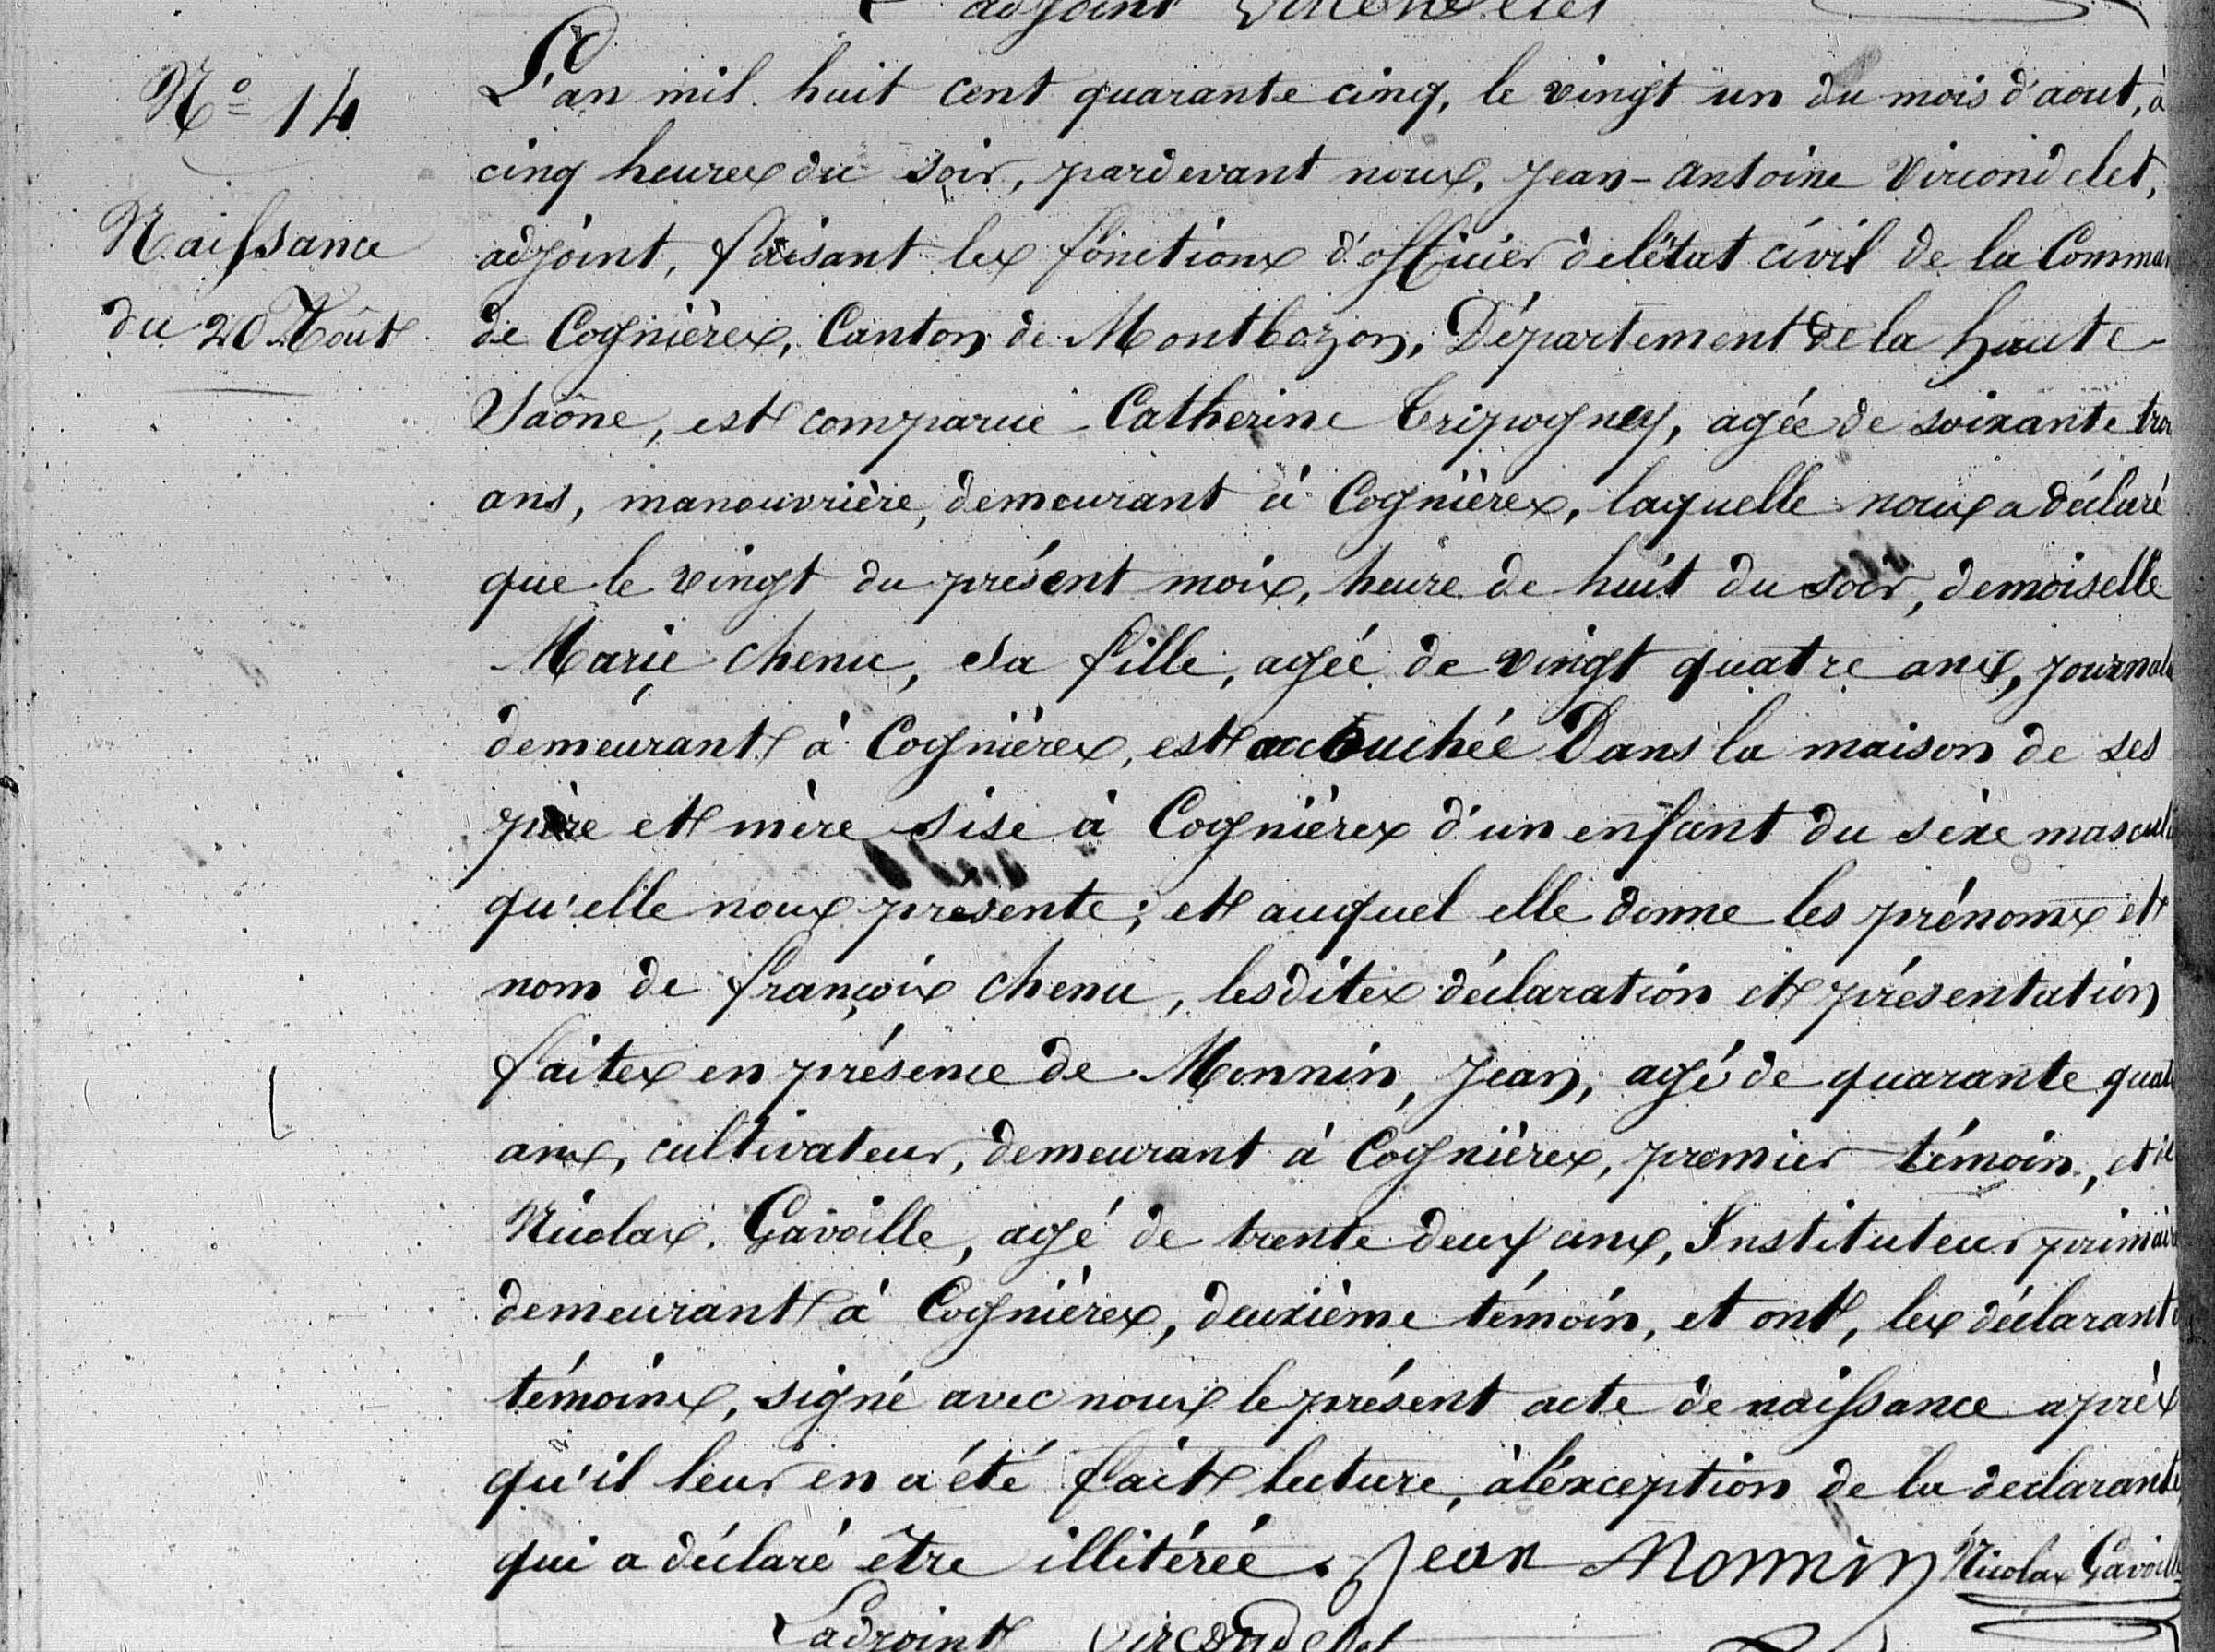 adjoint Vircondelet
N° 14
Naissance
du 20 Août
L'an mil huit cent quarante cinq, le vingt un du mois d'aout, à
cinq heures du soir, pardevant nous, Jean-Antoine Vircondelet,
adjoint, faisant les fonctions d'officier de l'état civil de la Commun
de Cognières, Canton de Montbozon, Département de la haute
Saône, est comparue Catherine Tripogney, agée de soixante troi
ans, manouvrière, demeurant à Cognières, laquelle nous a déclaré
que le vingt du présent mois, heure de huit du soir, demoiselle
Marie Chenu, sa fille, agée de vingt quatre ans, journal
demeurant à Cognières, est accouchée Dans la maison de ses
père et mère sise à Cognières d'un enfant du sèxe mascul
qu'elle nous présente; et auquel elle donne les prénoms et
nom de françois Chenu, lesdites déclaration et présentation
faites en présence de Monnin, Jean, agé de quarante quat
ans, cultivateur, demeurant à Cognières, premier témoin, et de
Nicolas Gavoille, agé de trente deux ans, Instituteur primair
demeurant à Cognières, deuxième témoin, et ont, les déclarant
témoins, signé avec nous le présent acte de naissance après
qu'il leur en a été fait lecture, à l'éxception de la declarante
qui a déclaré être illitérée. Jean Monnin Nicolas Gavoille
L'adjoint Vircondelet